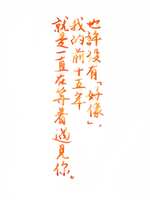 也許沒有「好像」.
我的前十五年
就是一直在等着遇見你。